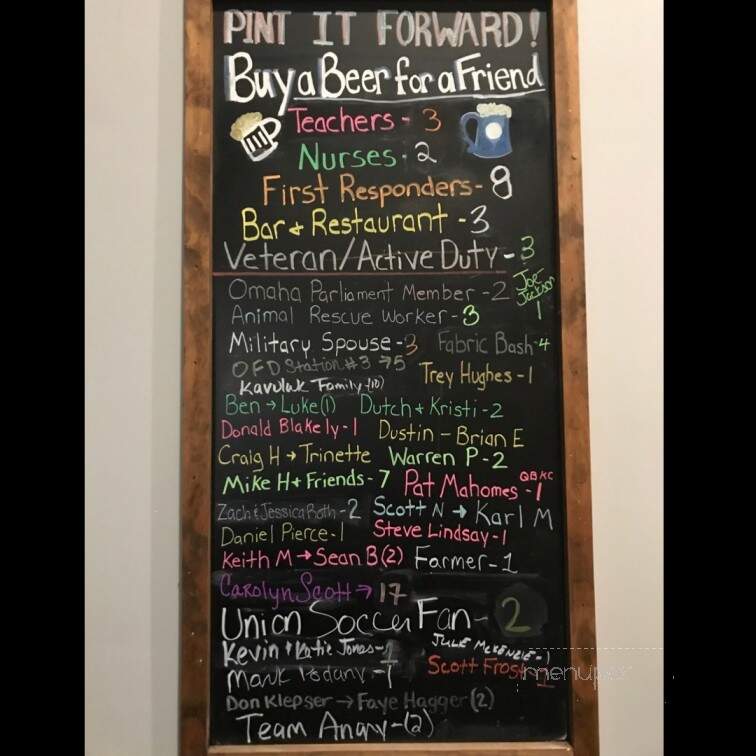 PINT IT FORWARD!
Buy a Beer for a Friend
Teachers - 3
Nurses - 2
First Responders - 8
Bar & Restaurant - 3
Veteran/Active Duty - 3
Omaha Parliament Member - 2
Joe Jackson 1
Animal Rescue Worker - 3
Military Spouse - 3 Fabric Bash - 4
OFD Station #3 → 5
Trey Hughes - 1
Kavulak Family (10)
Ben → Luke (1) Dutch & Kristi - 2
Donald Blakely - 1 Dustin - Brian E
Craig H → Trinette Warren P - 2
Mike H + Friends - 7 Pat Mahomes - 1 QB KC
Zach & Jessica Roth - 2 Scott N → Karl M
Daniel Pierce - 1 Steve Lindsay - 1
Keith M → Sean B (2) Farmer - 1
Carolyn Scott → 17
Union Soccer Fan - 2
Kevin & Katie Jones -
Julie McKenzie - 1
Mark - 1
Scott Frost 1
Don Klepser → Faye Hagger (2)
Team Angry - (2)
menupix